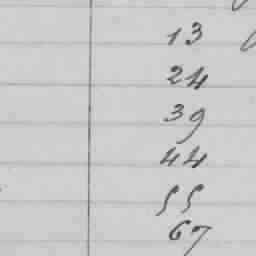 13
24
39
44
55
67